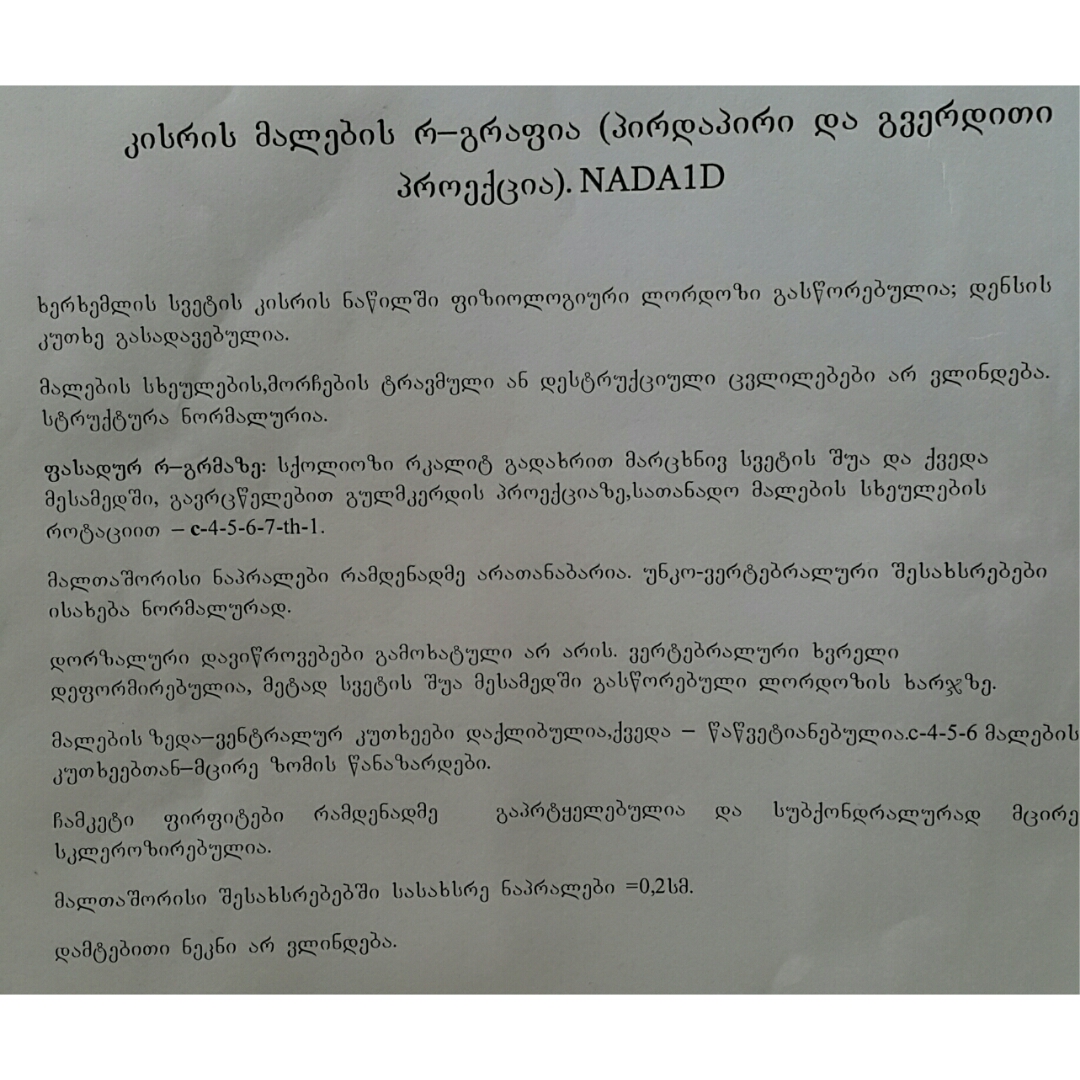 კისრის მალების რ–გრაფია (პირდაპირი და გვერდითი
პროექცია). NADA1D
ხერხემლის სვეტის კისრის ნაწილში ფიზიოლოგიური ლორდოზი გასწორებულია; დენსის
კუთხე გასადავებულია.
მალების სხეულების,მორჩების ტრავმული ან დესტრუქციული ცვლილებები არ ვლინდება.
სტრუქტურა ნორმალურია.
ფასადურ რ–გრმაზე: სქოლიოზი რკალიტ გადახრით მარცხნივ სვეტის შუა და ქვედა
მესამედში, გავრცწელებით გულმკერდის პროექციაზე,სათანადო მალების სხეულების
როტაციით – c-4-5-6-7-th-1.
მალთაშორისი ნაპრალები რამდენადმე არათანაბარია. უნკო-ვერტებრალური შესახსრებები
ისახება ნორმალურად.
დორზალური დავიწროვებები გამოხატული არ არის. ვერტებრალური ხვრელი
დეფორმირებულია, მეტად სვეტის შუა მესამედში გასწორებული ლორდოზის ხარჯზე.
მალების ზედა–ვენტრალურ კუთხეები დაქლიბულია,ქვედა – წაწვეტიანებულია.c-4-5-6 მალების
კუთხეებთან–მცირე ზომის წანაზარდები.
ჩამკეტი ფირფიტები რამდენადმე გაპრტყელებულია და სუბქონდრალურად მცირე
სკლეროზირებულია.
მალთაშორისი შესახსრებებში სასახსრე ნაპრალები =0,2სმ.
დამტებითი ნეკნი არ ვლინდება.